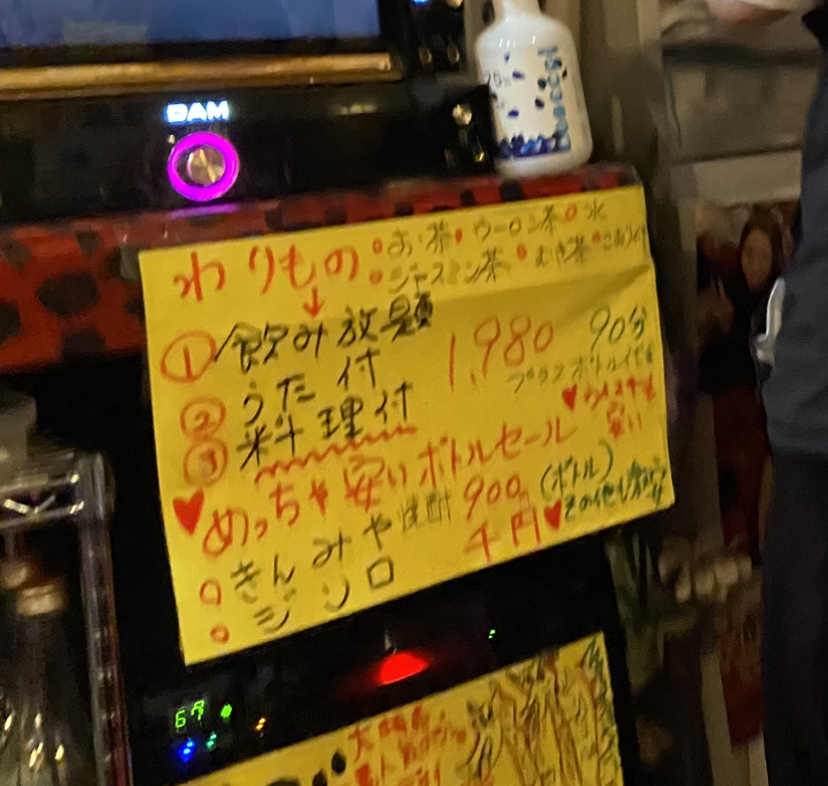 DAM
わりもの ○お茶 ○ウーロン茶 ○水
○ジャスミン茶 ○むぎ茶
↓
① 飲み放題 1,980 90分
② うた付 プラスボトル代
③ 料理付
♥めっちゃ安いボトルセール ♥ウイスキーも安い
○きんみや焼酎 900円 (ボトル)
○ジンロ 千円 ♥その他も